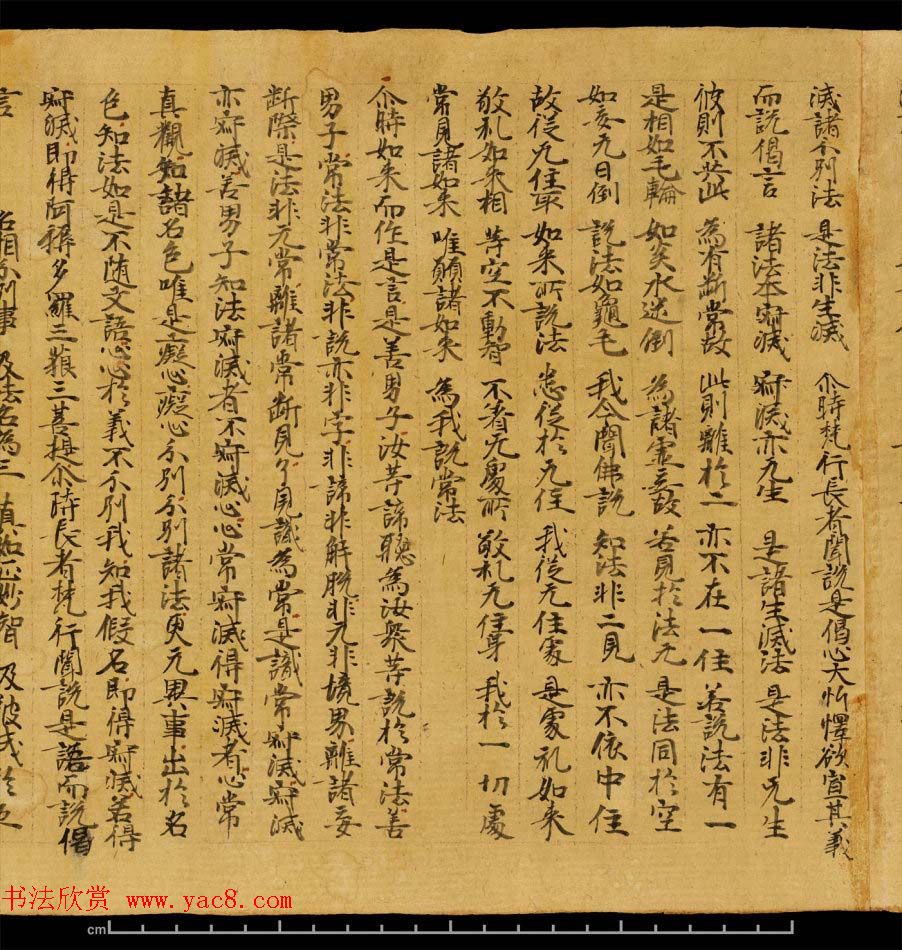 滅諸分別法 是法非生滅 尒時梵行長者聞說是偈心大忻懌欲宣其義
而說偈言 諸法本寂滅 寂滅亦无生 是諸生滅法 是法非无生
彼則不共此 為有断常故 此則離於二 亦不在一住 若說法有一
是相如毛輪 如炎水迷倒 為諸虛妄故 若見於法无 是法同於空
如妄无日倒 說法如龜毛 我今聞佛說 知法非二見 亦不依中住
故從无住取 如来所說法 悉從於无住 我從无住處 是處礼如来
敬礼如来相 等空不動智 不著无處所 敬礼无住身 我於一切處
常見諸如来 唯願諸如来 為我說常法
尒時如来而作是言是善男子汝等諦聽為汝衆等說於常法善
男子常法非常法非說亦非字非諦非解脫非无非境界離諸妄
断際是法非无常離諸常断見了見識為常是識常寂滅寂滅
亦寂滅善男子知法寂滅者不寂滅心心常寂滅得寂滅者心常
真觀知諸名色唯是癡心癡心分別分別諸法更无異事出於名
色知法如是不随文語心心於義不分別我知我假名即得寂滅若得
寂滅即得阿耨多羅三藐三菩提尒時長者梵行聞說是語而說偈
言 名相分別事 及法名為三 真如正妙智 及彼成於五
书法欣赏 www.yac8.com
cm